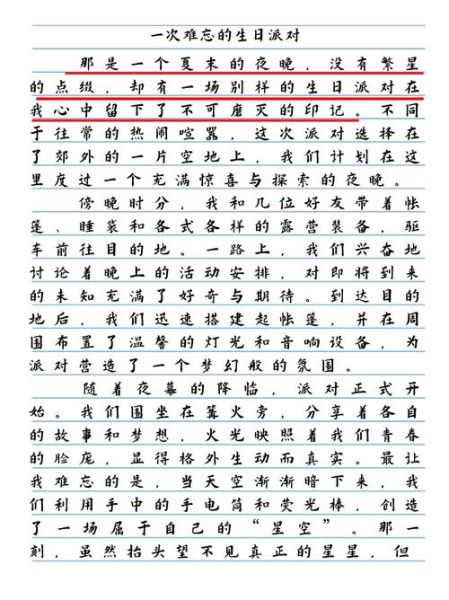 一次难忘的生日派对
那是一个夏末的夜晚，没有繁星
的点缀，却有一场别样的生日派对在
我心中留下了不可磨灭的印记。不同
于往常的热闹喧嚣，这次派对选择在
了郊外的一片空地上，我们计划在这
里度过一个充满惊喜与探索的夜晚。
傍晚时分，我和几位好友带着帐
篷、睡袋和各式各样的露营装备，驱
车前往目的地。一路上，我们兴奋地
讨论着晚上的活动安排，对即将到来
的未知充满了好奇与期待。到达目的
地后，我们迅速搭建起帐篷，并在周
围布置了温馨的灯光和音响设备，为
派对营造了一个梦幻般的氛围。
随着夜幕的降临，派对正式开
始。我们围坐在篝火旁，分享着各自
的故事和梦想，火光映照着我们青春
的脸庞，显得格外生动而真实。最让
我难忘的是，当天空渐渐暗下来，我
们利用手中的手电筒和荧光棒，创造
了一场属于自己的“星空”。那一
刻，虽然抬头望不见真正的星星，但